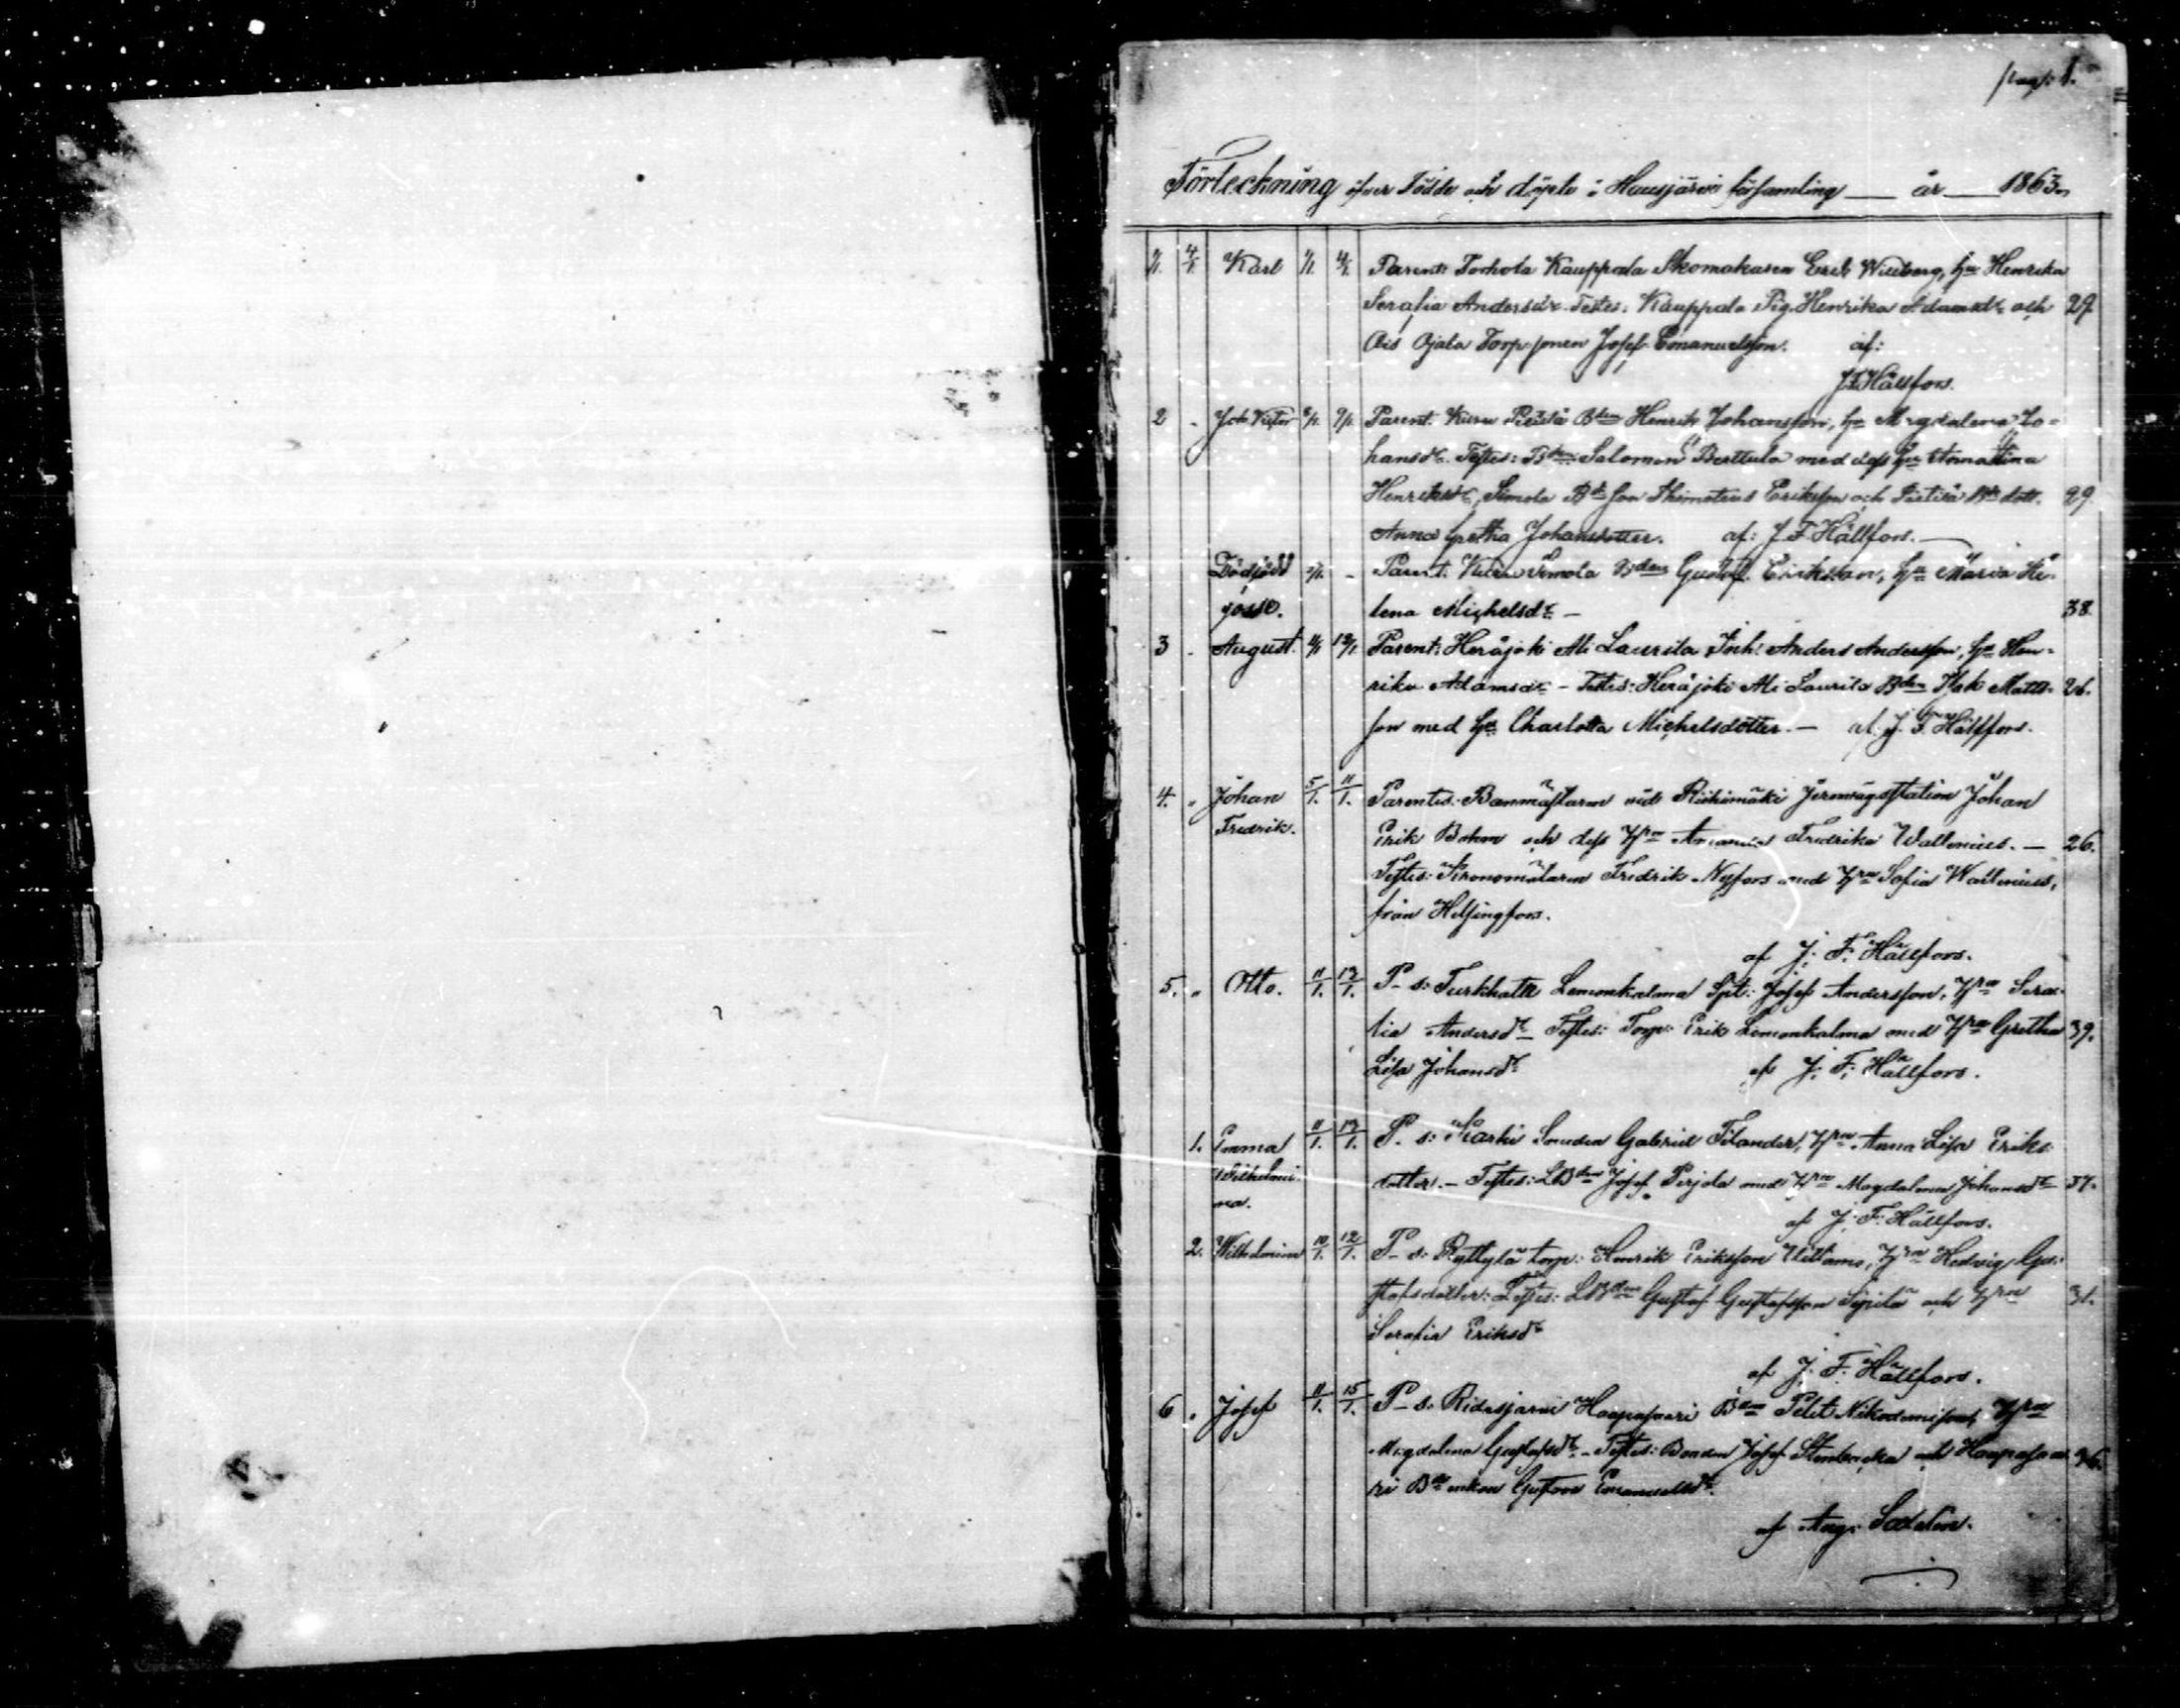 pag: 1.
Förteckning öfver Födde och döpte i Hausjärvi församling — år — 1863.
Karl 1/1. 4/1. Parent: Torhola Kauppala Skomakaren Erik Wiiberg, hu Henrika
Serafia Andersdr. Testes: Kauppala Pig. Henrika Adamsdr och 27
Ojala Torp. sonen Josef Emanuelsson. af:
J.F. Hällfors.
2 Joh. Victor Parent. Kuru Bden Henrik Johansson, hu Magdalena Jo-
hansdr. Testes: Bden Salomon Berttula med dess hu Anna Stina
Henriksdr, Simola Bde son Thimoteus Eriksson och dott. 29.
Anna Gretha Johansdotter. af: J F Hällfors. —
Dödfödd - Parent. Kuru Simola Bden Gustaf Eriksson, hu Maria He-
gosse. lena Michelsdr — 38.
3 - August. 12/1 Parent: Herajoki Ali Laurila Inh. Anders Andersson, hu Hen-
rika Adamsdr - Testes: Herajoki Ali Laurila Bden Isak Matts- 26.
son med hu Charlotta Michelsdotter. — af. J. F. Hällfors.
4. " Johan 5/1. 11/1. Parentes: Banmästaren vid Riihimäki Jernvägsstation Johan
Fredrik. Erik Bohm och dess Hru Amanda Fredrika Wallenius. — 26.
Testes: Fredrik Nyfors med Hru Sofia Wallenius,
från Helsingfors.
af J. F. Hällfors.
5. " Otto. 11/1. 13/1. P- s: Turkhata Lemonkalma Josef Andersson, Hru Sera-
fia Andersdr — Testes: Torp: Erik Lemonkalma med Hru Gretha 39.
Lisa Johansdr af J. F. Hällfors.
1. Emma 11/1. 13/1. P. s: Karhi Smeden Gabriel Filander, Hru Anna Lisa Eriks-
Wilhelmi- dotter. — Testes: LBden Josef Perjola med Hru Magdalena Johansdr 37.
na.
af J. F. Hällfors.
2. Wilhelmina 10/1. 12/1. P- s: Ryttylä torp: Henrik Eriksson Uittamo, Hru Hedvig Gu-
stafsdotter: Testes: LBden Gustaf Gustafsson Sipilä och Hru 31.
Serafia Eriksdr
af J. F. Hällfors.
6 " Josef 11/1. 15/1. P- s: Ridasjärvi Haapasaari Bden Nikodemisson, Hru
Magdalena Gustafsdr. - Testes: Bonden Josef och Haapasaa- 36.
ri Bde enkan Gustava Emanuelsdr.
af Aug: Sodalin.